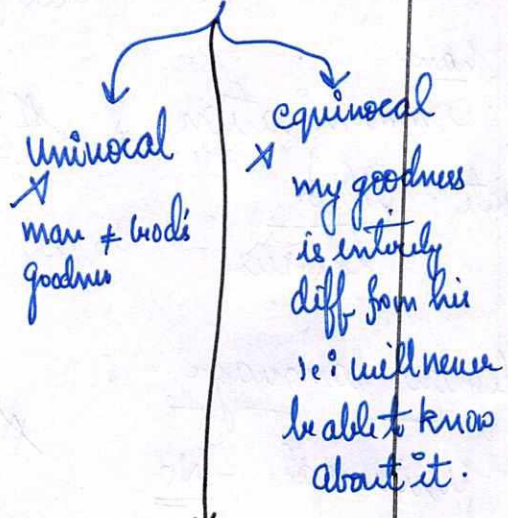 univocal
x
man ≠ God's
goodness
equivocal
x
my goodness
is entirely
diff from his
i.e. will never
be able to know
about it.